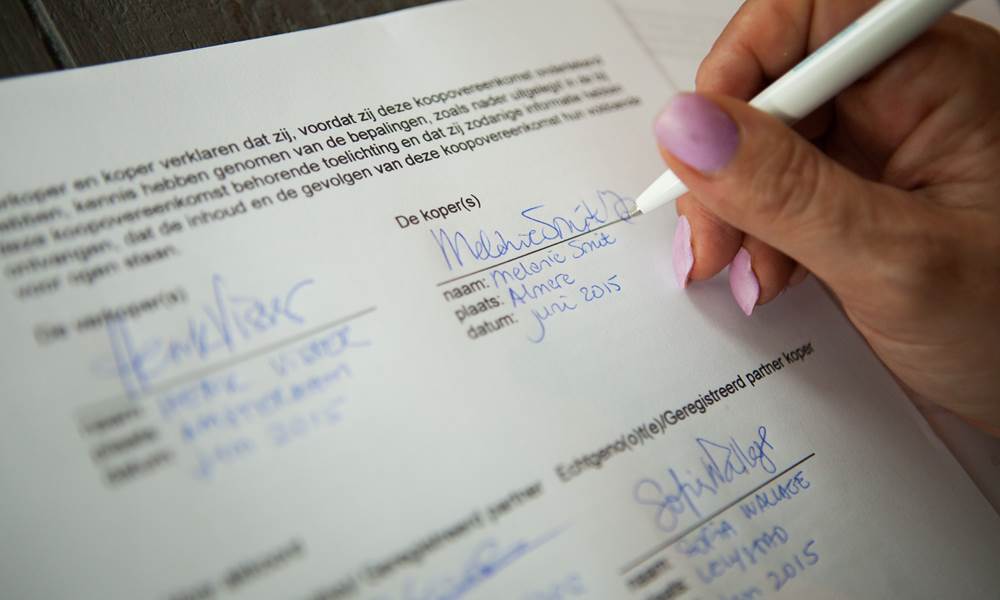 verkoper en koper verklaren dat zij, voordat zij deze koopovereenkomst ondertekend
hebben, kennis hebben genomen van de bepalingen, zoals nader uitgelegd in de bij
deze koopovereenkomst behorende toelichting en dat zij zodanige informatie hebben
ontvangen, dat de inhoud en de gevolgen van deze koopovereenkomst hun voldoende
voor ogen staan.
De verkoper(s)
De koper(s)
Melanie Smit
naam: Melanie Smit
plaats: Almere
datum: juni 2015
Henk Visser
naam: HENK VISSER
plaats: AMSTERDAM
datum: 2015
Echtgeno(o)t(e)/Geregistreerd partner koper
Geregistreerd partner
Sofia Wallace
naam: SOFIA WALLACE
LELYSTAD
2015